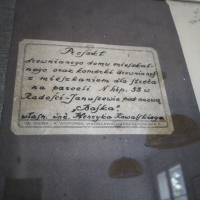 Projekt
drewnianego domu mieszkal-
nego oraz komórki drewnianej
z mieszkaniem dla stróża
na parceli N hip. 93 w
Radości-Januszewie pod nazwą
„Bajka”
własn. inż. Henryka Kowalskiego